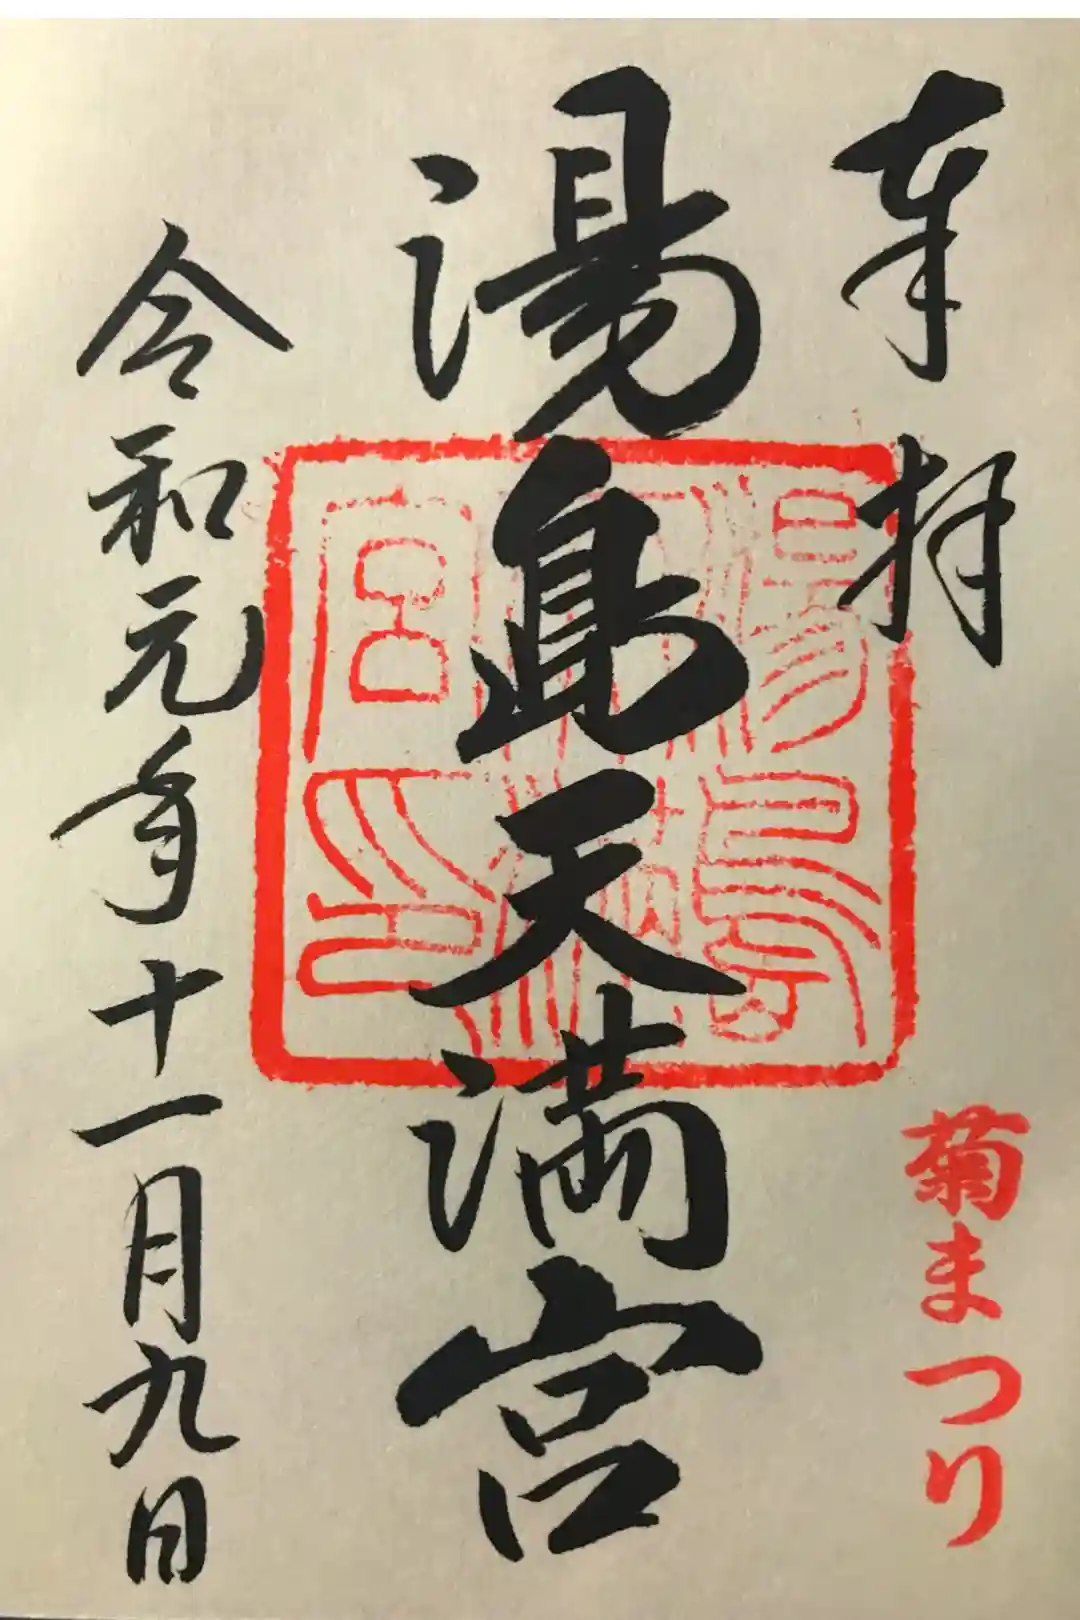 奉拝
菊まつり
湯島天満宮
湯島天満宮印
令和元年十一月九日